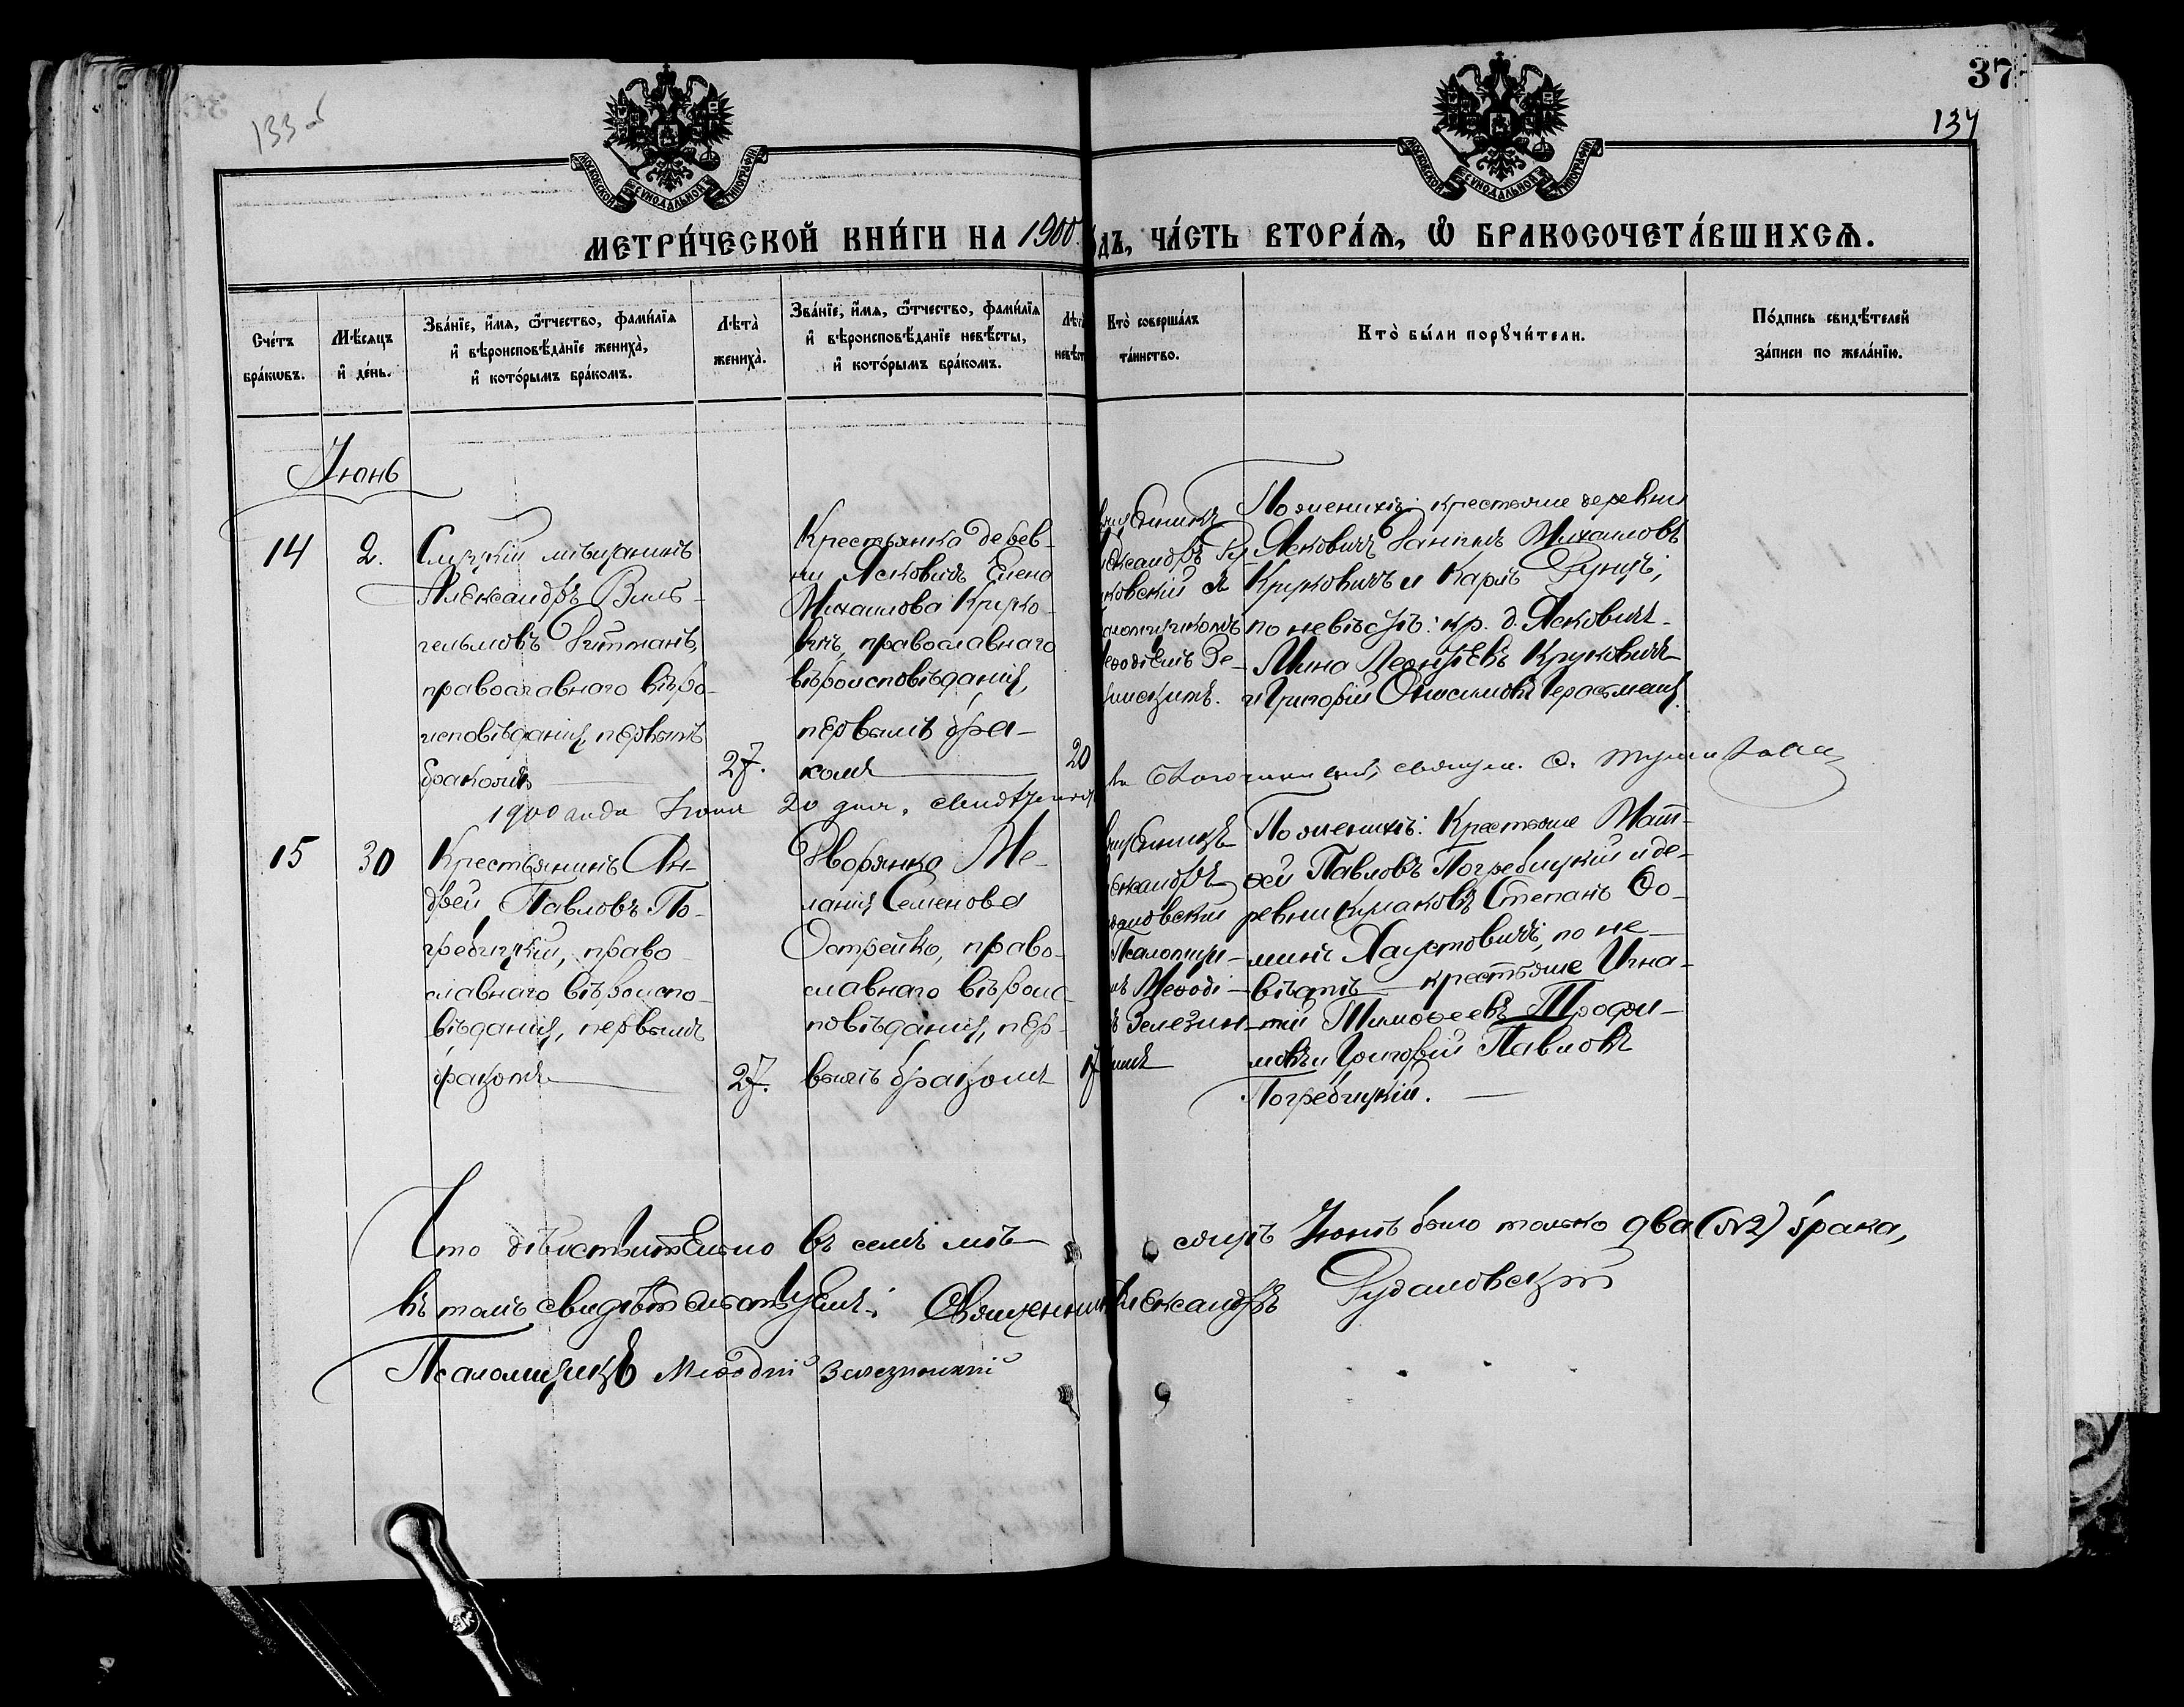 37
133 об
134
МОСКОВСКОЙ СѴНОДАЛЬНОЙ ТИПОГРАФІИ
МОСКОВСКОЙ СѴНОДАЛЬНОЙ ТИПОГРАФІИ
МЕТРИ́ЧЕСКОЙ КНИ́ГИ НА 1900 ДЪ, ЧА́СТЬ ВТОРА́Ѧ, Ѿ БРАКОСОЧЕТА́ВШИХСѦ.
Сче́тъ
бра́кѡвъ.
Мѣ́сяцъ
и҆ де́нь.
Зва́нїе, и҆́мѧ, ѻ҆́тчество, фами́лїѧ
и҆ вѣроисповѣ́данїе жениха̀,
и҆ кото́рымъ бра́комъ.
Лѣта̀
жениха̀.
Зва́нїе, и҆́мѧ, ѻ҆́тчество, фами́лїѧ
и҆ вѣроисповѣ́данїе невѣ́сты,
и҆ кото́рымъ бра́комъ.
Лѣта̀
невѣст
Кто̀ соверша́лъ
та́инство.
Кто̀ бы́ли порꙋчи́тели.
По́дпись свидѣ́телей
за́писи по жела́нїю.
Іюнь
14
2.
Слуцкій мѣщанинъ
Александръ Виль-
гельмовъ Дитманъ,
православнаго вѣро-
исповѣданія, первымъ
бракомъ
27.
Крестьянка дерев-
ни Ясковичъ Елена
Михаилова Круко-
вичъ, православнаго
вѣроисповѣданія,
первымъ бра-
комъ
20
щенникъ
лександръ Ру
ковскій съ
аломщикомъ
еѳодіемъ Зе-
По женихѣ: крестьяне деревни
Ясковичъ Даніилъ Михаиловъ
Круковичъ и Карлъ Гунцъ;
по невѣстѣ: кр. д. Ясковичъ
Мина Леонтьевъ Круковичъ
и Григорій Онисимовъ Герасименя.
1900 года Іюня 20 дня,
15
30
Крестьянинъ Ан-
дрей Павловъ По-
гребицкій, право-
славнаго вѣроиспо-
вѣданія, первымъ
бракомъ
27.
Дворянка Ме-
ланія Семенова
Острейко, право-
славнаго вѣроис-
повѣданія, пер-
вымъ бракомъ
17
щенникъ
ександръ
даловскій
Псаломщи-
мъ Меѳоді-
ъ Зелезин-
имъ
По женихѣ: Крестьяне Мат-
ѳей Павловъ Погребицкій и де-
ревни Кирмаковъ Степанъ Ѳо-
минъ Хаустовичъ, по не-
вѣстѣ крестьяне Игна-
тій Тимоѳеевъ Трофи-
мовъ и Григорій Павловъ
Погребицкій.
Что дѣйствительно въ семъ мѣ-
сяцѣ Іюнѣ было только два (№2) брака,
въ томъ свидѣтельствуемъ: Священникъ Александръ Рудаловскій
Псаломщикъ Меѳодій